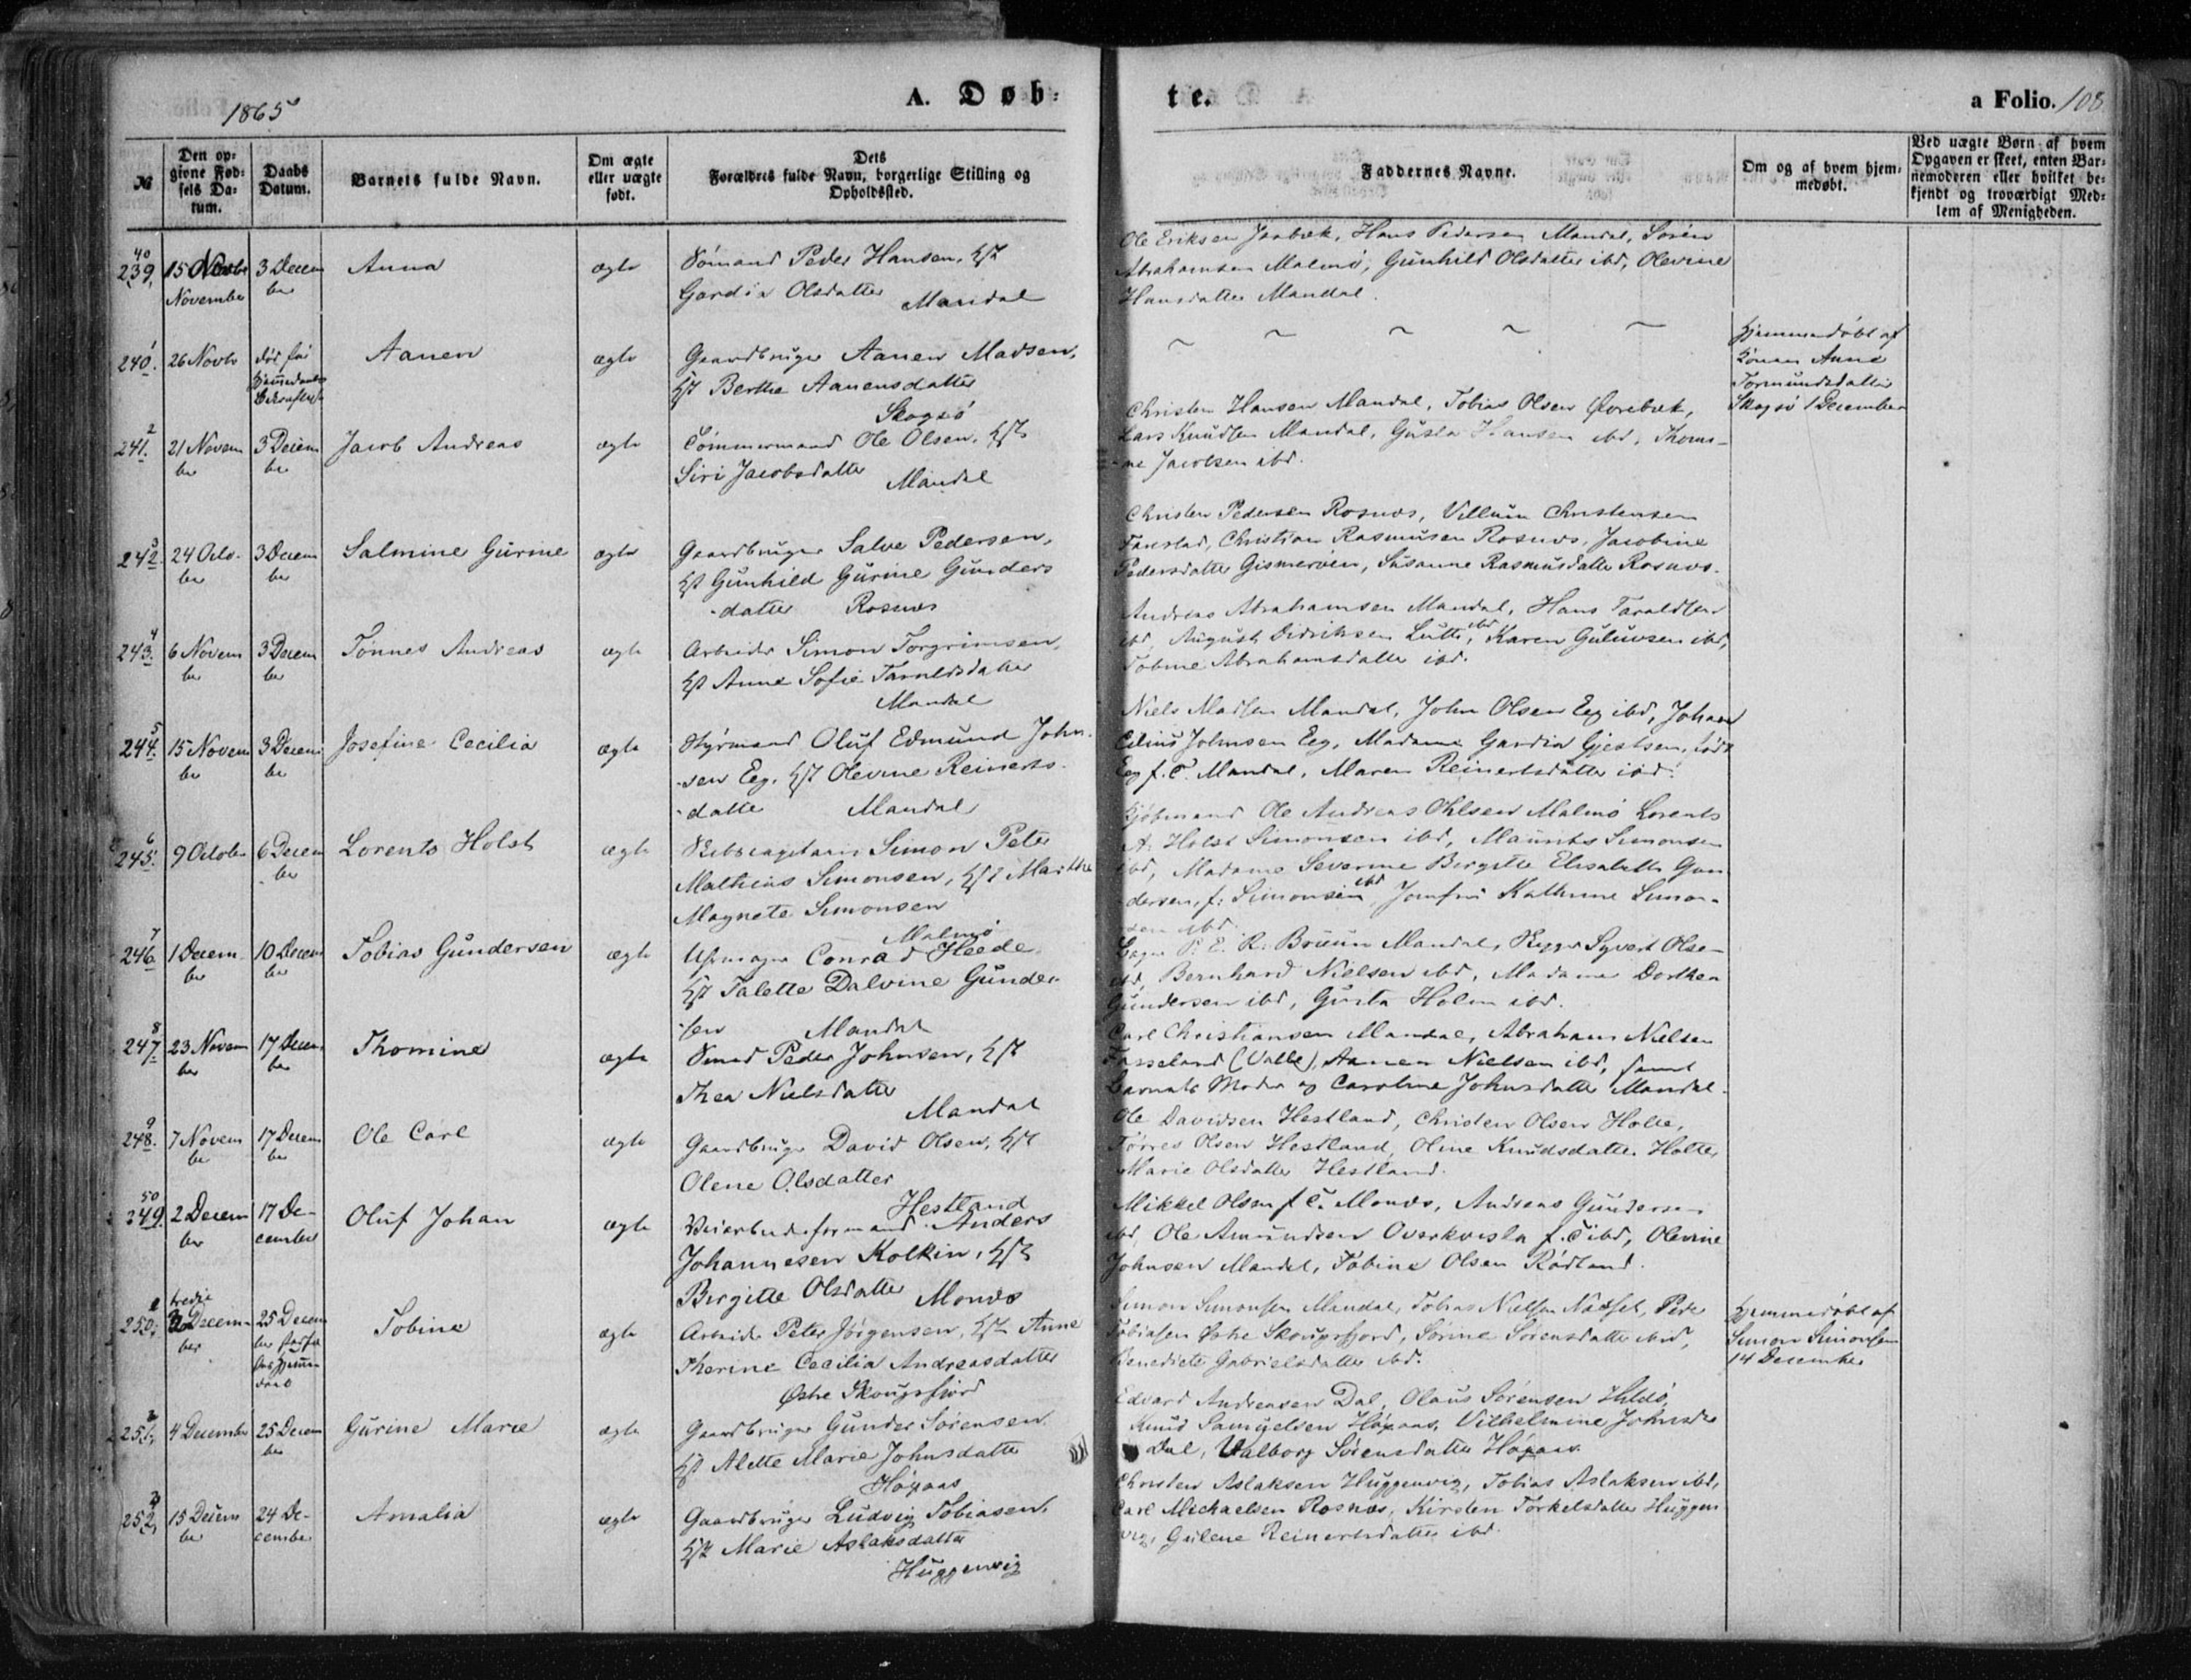 1865
A. Døb-
te.
a Folio. 108
№
Den op-
givne Fød-
sels Da-
tum.
Daabs
Datum.
Barnets fulde Navn.
Om ægte
eller uægte
født.
Dets
Forældres fulde Navn, borgerlige Stilling og
Opholdssted.
Faddernes Navne.
Om og af hvem hjem-
medøbt.
Ved uægte Børn af hvem
Opgaven er skeet, enten Bar-
nemoderen eller hvilket be-
kjendt og troværdigt Med-
lem af Menigheden.
40
239, 15 November 3 Decem
ber Anna ægte Sømand Peder Hansen,
Gardia Olsdatter Mandal
Ole Eriksen, Hans Pedersen Mandal, Søren
Abrahamsen Malmø, Gunhild Olsdatter ibd, Olevine
Hansdatter Mandal.
1
240. 26 Novbr død før
Aanen ægte Gaardbruger Aanen Madsen,
Berthe Aanensdatter
Skogsø
~ ~ ~ ~ ~
Hjemmedøbt af
Konen Anne
Tormundsdatter
Skogsø 1 December
2
241. 21 Novem
ber 3 Decem
ber Jacob Andreas ægte Tømmermand Ole Olsen,
Siri Jacobsdatter Mandal
Christen Hansen Mandal, Tobias Olsen Øvrebæk,
Lars Knudsen Mandal, Gusta Hansen ibd,
Jacobsen ibd.
3
242. 24 Octo-
ber 3 Decem
ber Salmine Gurine ægte Gaardbruger Salve Pedersen,
Gunhild Gurine Gunders
-datter Rosnæs
Christen Pedersen Rosnæs, Villum Christensen
Christian Rasmusen Rosnæs, Jacobine
Pedersdatter Gismerøen, Susanne Rasmusdatter Rosnæs.
4
243. 6 Novem
ber 3 Decem
ber Tønnes Andreas ægte Arbeider Simon Torgrimsen,
Anne Sofie Taraldsdatter
Mandal
Andreas Abrahamsen Mandal, Hans Taraldsen
ibd, August Didriksen ibd, Karen Gulüvsen ibd,
Tobine Abrahamsdatter ibd.
5
244. 15 Novem
ber 3 Decem
ber Josefine Cecilia ægte Styrmand Oluf Edmund John-
-sen Eeg, Olevine Reinerts-
-datter Mandal
Niels Madsen Mandal, John Olsen Eeg ibd, Johan
Johnsen Eeg, Madame Gardia Gjertsen, født
Eeg f. T. Mandal, Maren Reinertsdatter ibd.
6
245. 9 October 6 Decem
ber Lorents Holst ægte Skibscapitain Simon Peter
Mathias Simonsen, Marthe
Magnete Simonsen
Malmø
Kjøbmand Ole Andreas Ohlsen Malmø Lorents
A. Holst Simonsen ibd, Maurits Simonsen
ibd, Madame Severine Birgitte Elisabeth Gun
dersen, f: Simonsen ibd, Jomfru Kathrine Simon-
sen ibd.
7
246 1 Decem
ber 10 Decem
ber Tobias Gundersen ægte Uhrmager Conrad Heede,
Talette Dalvine Gunder-
-sen Mandal
P. E. R. Bruun Mandal, Syvert Olsen
ibd, Bernhard Nielsen ibd, Madame Dorthea
Gundersen ibd, Gusta Holm ibd.
8
247. 23 Novem
ber 17 Decem
ber Thomine ægte Smed Peder Johnsen,
Thea Nielsdatter
Mandal
Carl Christiansen Mandal, Abraham Nielsen
(Valle), Aanen Nielsen ibd, samt
Barnets Moder og Caroline Johnsdatter Mandal.
9
248. 7 Novem
ber 17 Decem
ber Ole Carl ægte Gaardbruger David Olsen,
Olene Olsdatter
Hestland
Ole Davidsen Hestland, Christen Olsen Holte,
Tørres Olsen Hestland, Oline Knudsdatter Holte,
Marie Olsdatter Hestland.
50
249. 2 Decem
ber 17 De-
cember Oluf Johan ægte Anders
Johannesen Kolkin,
Birgitte Olsdatter Monæs
Mikkel Olsen f. T. Monæs, Andreas Gundersen
ibd, Ole Amundsen f. T. ibd, Olevine
Johnsen Mandal, Tobine Olsen Rødland.
1
250. tredie
3 Decem-
ber 25 Decem
ber
Tobine ægte Arbeider Peter Jørgensen, Anne
Therine Cecilia Andreasdatter
Østre Skougsfjord
Simon Simonsen Mandal, Tobias Nielsen, Peder
Tobiasen Østre Skougsfjord, Sørine Sørensdatter ibd,
Benedicte Gabrielsdatter ibd.
Hjemmedøbt af
Simon Simonsen
14 December
2
251, 4 December 25 Decem
ber Gurine Marie ægte Gaardbruger Gunder Sørensen
Alette Marie Johnsdatter
Høyaas
Edvard Andreasen Dal, Olaus Sørensen
Knud Samuelsen Høyaas, Vilhelmine Johnsdr
Dal, Valborg Sørensdatter Høyaas.
3
252, 15 Decem
ber 24 De-
cember Amalia ægte Gaardbruger Ludvig Tobiasen,
Marie Aslaksdatter
Huggenvig
Christen Aslaksen Huggenvig, Tobias Aslaksen ibd,
Carl Michaelsen Rosnæs, Kirsten Torkelsdatter Huggen
vig, Gulene Reinertsdatter ibd.